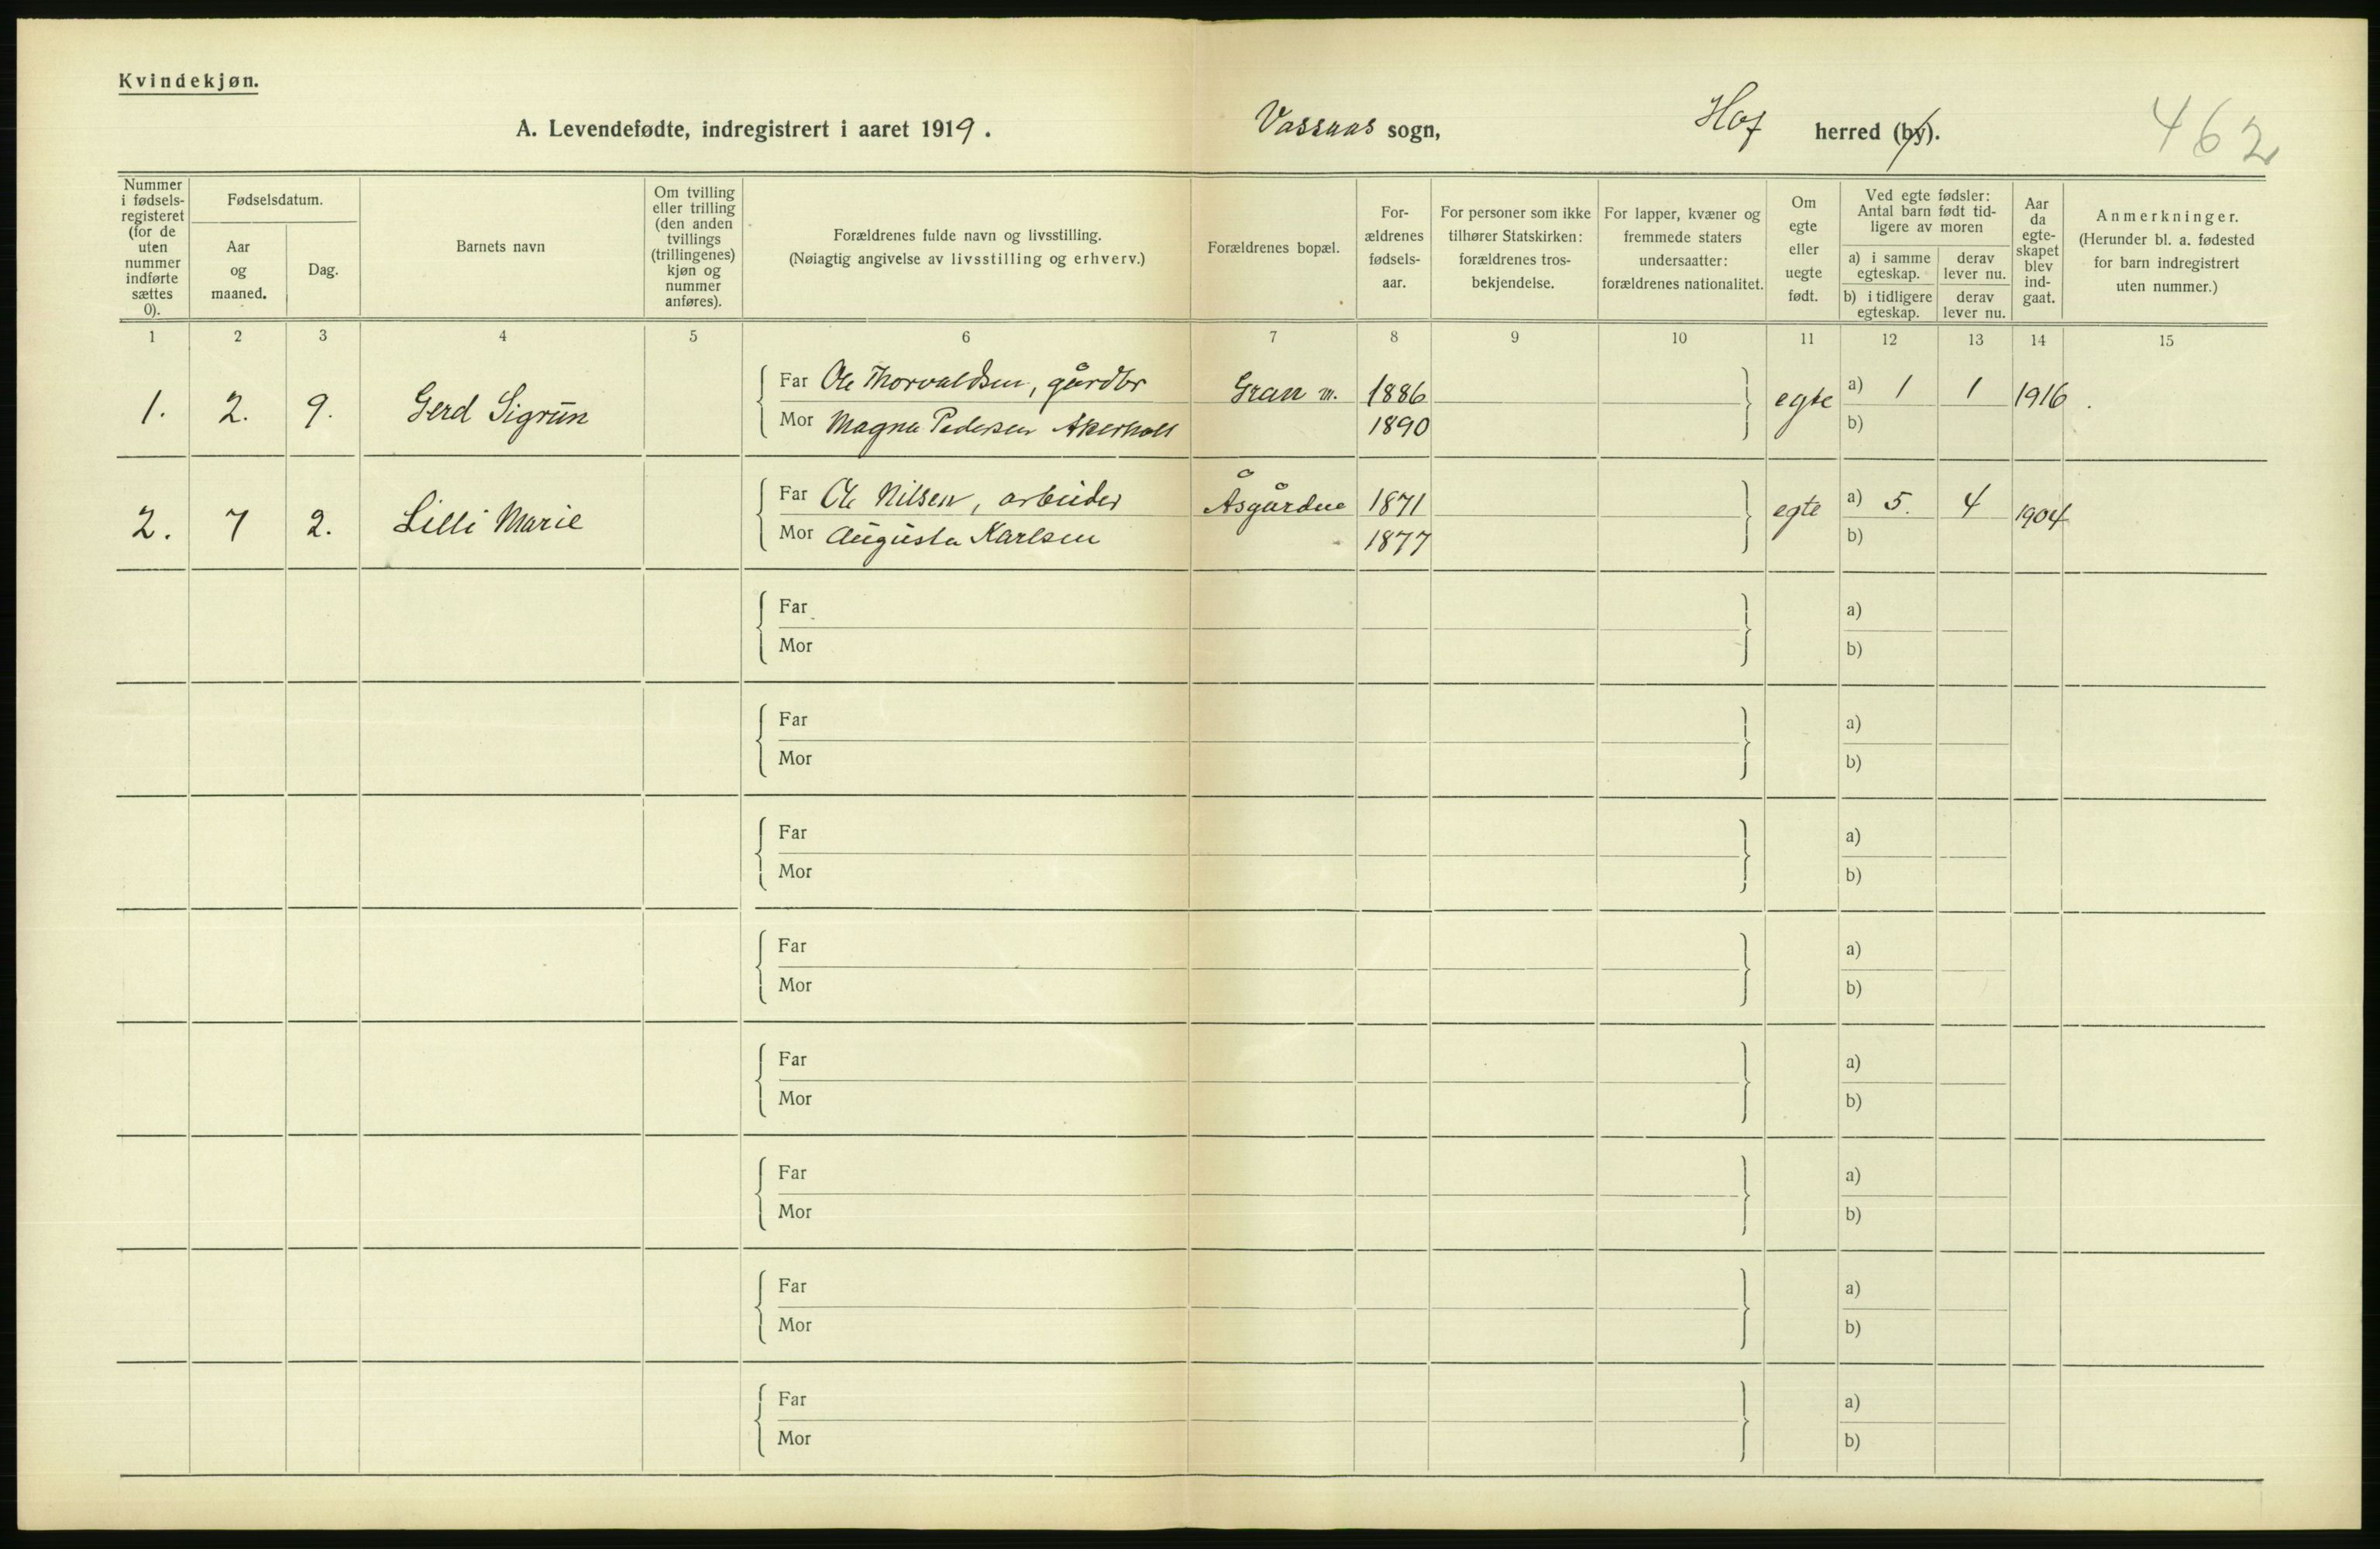 Kvindekjøn.
A. Levendefødte, indregistrert i aaret 1919.
Vassaas sogn, Hof herred (by).
462
Nummer i fødsels-registeret (for de uten nummer indførte sættes 0).
Fødselsdatum.
Aar og maaned.
Dag.
Barnets navn
Om tvilling eller trilling (den anden tvillings (trillingenes) kjøn og nummer anføres).
Forældrenes fulde navn og livsstilling.
(Nøiagtig angivelse av livsstilling og erhverv.)
Forældrenes bopæl.
For-ældrenes fødsels-aar.
For personer som ikke tilhører Statskirken: forældrenes tros-bekjendelse.
For lapper, kvæner og fremmede staters undersaatter: forældrenes nationalitet.
Om egte eller uegte født.
Ved egte fødsler: Antal barn født tid-ligere av moren
a) i samme egteskap.
derav lever nu.
b) i tidligere egteskap.
derav lever nu.
Aar da egte-skapet blev ind-gaat.
Anmerkninger.
(Herunder bl. a. fødested for barn indregistrert uten nummer.)
1 2 3 4 5 6 7 8 9 10 11 12 13 14 15
1. 2. 9. Gerd Sigrun Far Ole Thorvaldsen, gårdbr Gran m. 1886 egte a) 1 1 1916
Mor Magna Pedersen Akerholt 1890 b)
2. 7 2. Lilli Marie Far Ole Nilsen, arbeider Åsgårdne 1871 egte a) 5. 4 1904
Mor Augusta Karlsen 1877 b)
Far a)
Mor b)
Far a)
Mor b)
Far a)
Mor b)
Far a)
Mor b)
Far a)
Mor b)
Far a)
Mor b)
Far a)
Mor b)
Far a)
Mor b)